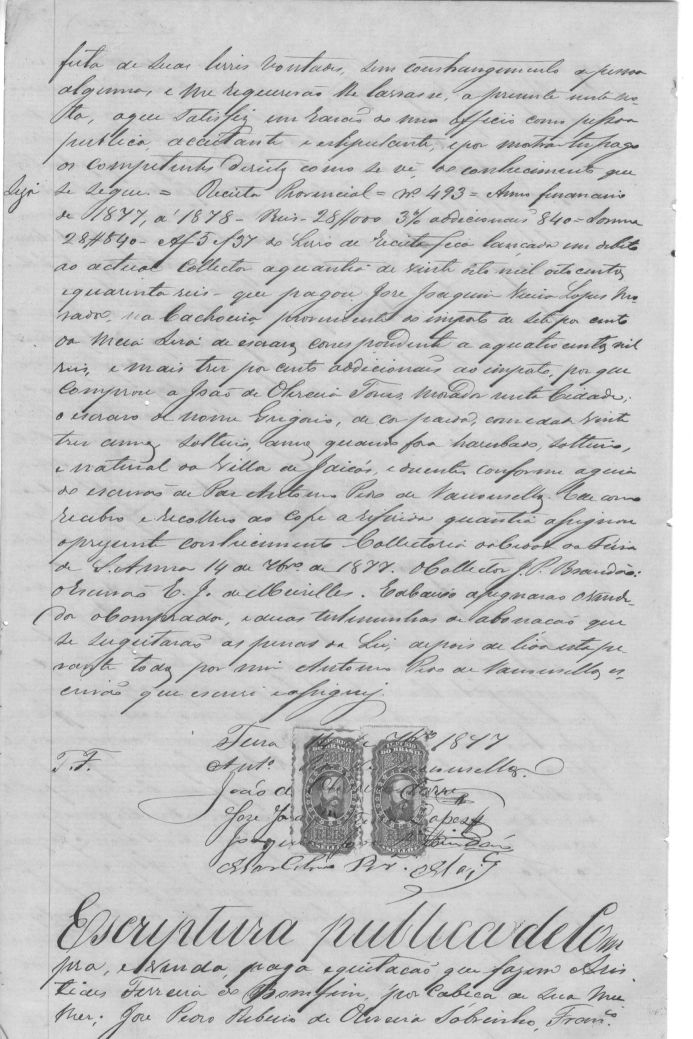 feita de suas livres vontades, sem constrangimento de pessoa
algumas e me requererão lhe lavrasse, a presente nesta no-
ta, a que satisfiz em razão do meu officio como pessoa
publica, aceitante e estipulante, e por mostrar ter pago
os competentes direitos como se vê, do conhecimento que
Siza
se segue. = Receita Provincial = Nº 493 = Anno financeiro
de 1877, á 1878 - Reis - 28#000 3% addicionais 840 = Somma
28#840 - Af 5 e f 37 do Livro de Receita fica lançada em debito
ao actual Collector a quantia de vinte oito mil oito centos
e quarenta reis - que pagou Jose Joaquim Vieira Lopes Mo-
rador, na Cachoeira proveniente do imposto de sete por cento
da Meia Siza de escravos correspondente a quatro centos mil
reis, e mais tres por cento addicionais ao imposto, por que
comprou a João de Oliveira Torres, morador nesta Cidade;
o escravo de nome Gregorio, de cor parda, com edade vinte
tres annos, solteiro, annos, quando fora solteiro,
e natural da Villa de Jaicós, conforme a guia
do escrivão de Paz Antonio Pires de Vasconcellos. E de como
recebeo e recolheo ao cofre a referida quantia assignou
o presente conhecimento Collectoria da Cidade da Feira
de S. Anna 14 de 7bro de 1877. O Collector J. P. Brandão:
o Escrivão E. J. de Meirelles. E abaixo assignarão o vende-
dor o Comprador, e duas testemunhas que
se sugeitarão as penas da Lei, depois de lida esta pe-
rante todos por mim Antonio Pires de Vasconcellos es-
crivão que escrevi e assignei.
Feira 7bro 1877
T.F.
Antº Vasconcellos.
João de Oliveira Torres
Jose Joaquim Lopes
Joaquim
1º PEDRO
DO BRASIL
SELLO
Escriptura publica de Com
pra, e venda, paga e quitação que fazem Aris
tides Ferreira do Bomfim, por cabeça de sua mu
lher; Jose Pedro Ribeiro de Oliveira Sobrinho, Franco.